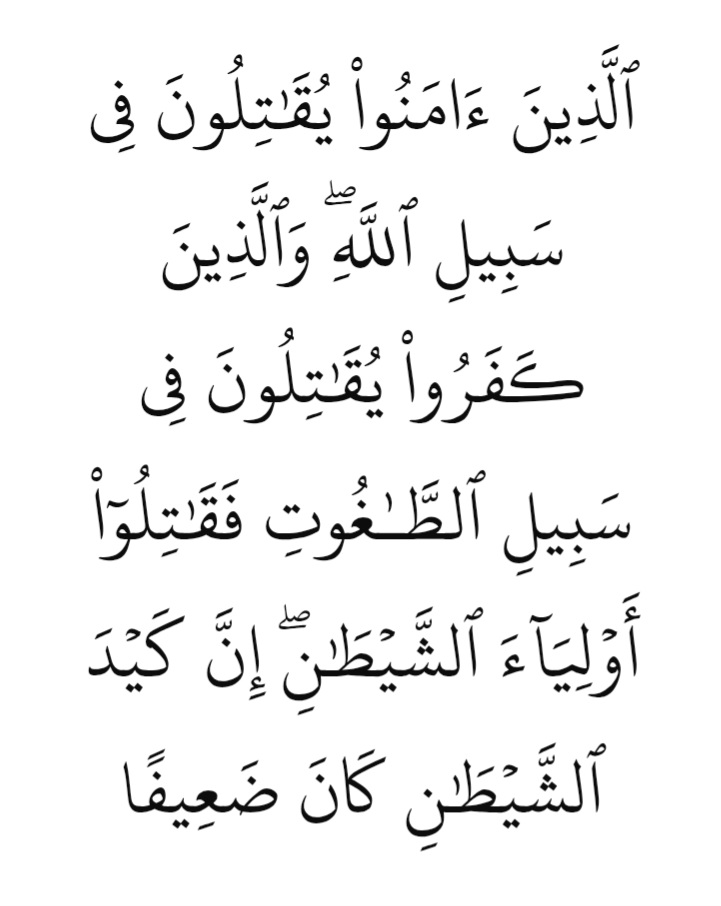 ٱلَّذِينَ ءَامَنُوا۟ يُقَـٰتِلُونَ فِى
سَبِيلِ ٱللَّهِ ۖ وَٱلَّذِينَ
كَفَرُوا۟ يُقَـٰتِلُونَ فِى
سَبِيلِ ٱلطَّـٰغُوتِ فَقَـٰتِلُوٓا۟
أَوْلِيَآءَ ٱلشَّيْطَـٰنِ ۖ إِنَّ كَيْدَ
ٱلشَّيْطَـٰنِ كَانَ ضَعِيفًا